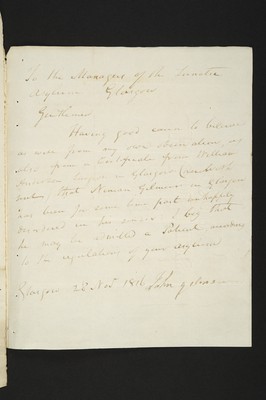 To the Managers of the Lunatic
Asylum Glasgow
Gentlemen
Having good cause to believe
as well from my own observation, as
also from a Certificate from William
Anderson Surgeon in Glasgow herewith
sent, that Ninian Gilmour in Glasgow
has been for some time past unhappily
deranged in his mind I beg that
he may be admitted a Patient according
to the regulations of your Asylum
Glasgow 22 Novr 1816 John